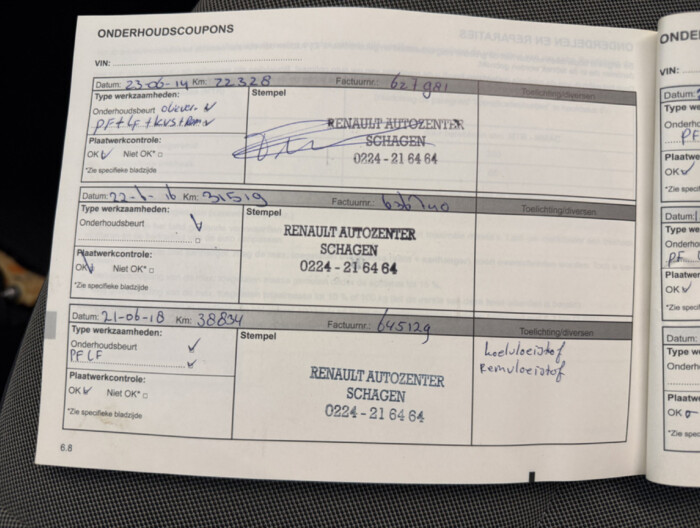 ONDERHOUDSCOUPONS
VIN:
Datum: 23-06-14 Km: 22328 Factuurnr.:
Type werkzaamheden: Stempel Toelichting/diversen
Onderhoudsbeurt
PF+LF+KVS+Rem
Plaatwerkcontrole:
OK Niet OK*
*Zie specifieke bladzijde
RENAULT AUTOZENTER
SCHAGEN
0224-21 64 64
Datum: Km: 31519 Factuurnr.:
Type werkzaamheden: Stempel Toelichting/diversen
Onderhoudsbeurt
Plaatwerkcontrole:
OK Niet OK*
*Zie specifieke bladzijde
RENAULT AUTOZENTER
SCHAGEN
0224-21 64 64
Datum: 21-06-18 Km: 38834 Factuurnr.: 645129
Type werkzaamheden: Stempel Toelichting/diversen
Onderhoudsbeurt
PF LF
Plaatwerkcontrole:
OK Niet OK*
*Zie specifieke bladzijde
RENAULT AUTOZENTER
SCHAGEN
0224-21 64 64
koelvloeistof
Remvloeistof
6.8
ONDE
VIN:
Datum:
Type we
Onderho
PF
Plaatwe
OK
*Zie spec
Type we
Onderho
PF
Plaatwer
OK
*Zie spec
Datum:
Type we
Onderh
Plaatw
OK
*Zie spec